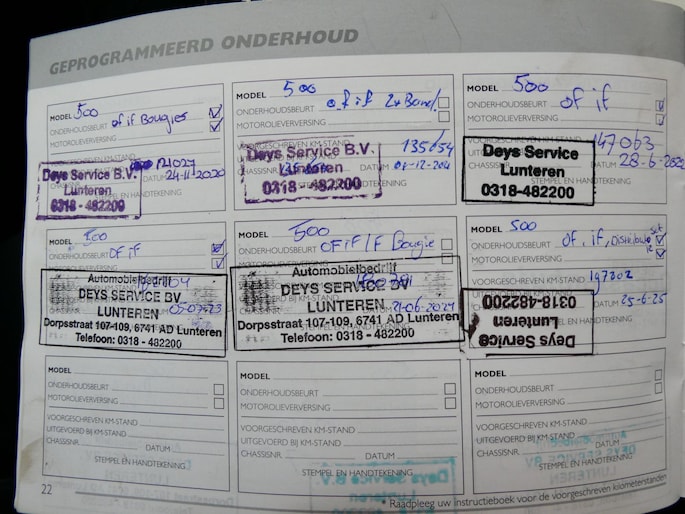 GEPROGRAMMEERD ONDERHOUD
MODEL 500
ONDERHOUDSBEURT of if Bougies
MOTOROLIEVERVERSING
24-11-2020
Deys Service B.V.
Lunteren
0318 - 482200
MODEL 500
ONDERHOUDSBEURT of if 2x Band
MOTOROLIEVERVERSING
135654
DATUM
Deys Service B.V.
Lunteren
0318 - 482200
STEMPEL EN HANDTEKENING
MODEL 500
ONDERHOUDSBEURT of if
MOTOROLIEVERVERSING
VOORGESCHREVEN KM-STAND
147063
CHASSISNR. DATUM 28-6-2022
STEMPEL EN HANDTEKENING
Deys Service
Lunteren
0318-482200
MODEL 500
ONDERHOUDSBEURT OF iF
MOTOROLIEVERVERSING
Automobielbedrijf
DEYS SERVICE BV
LUNTEREN
Dorpsstraat 107-109, 6741 AD Lunteren
Telefoon: 0318 - 482200
MODEL 500
ONDERHOUDSBEURT OF iF IF Bougie
MOTOROLIEVERVERSING
21-06-2024
Automobielbedrijf
DEYS SERVICE BV
LUNTEREN
Dorpsstraat 107-109, 6741 AD Lunteren
Telefoon: 0318 - 482200
MODEL 500
ONDERHOUDSBEURT of, if, Distributie set
MOTOROLIEVERVERSING
VOORGESCHREVEN KM-STAND 197202
UITGEVOERD BIJ KM-STAND
DATUM 25-6-25
STEMPEL EN HANDTEKENING
Deys Service
Lunteren
0318-482200
MODEL
ONDERHOUDSBEURT
MOTOROLIEVERVERSING
VOORGESCHREVEN KM-STAND
UITGEVOERD BIJ KM-STAND
CHASSISNR. DATUM
STEMPEL EN HANDTEKENING
MODEL
ONDERHOUDSBEURT
MOTOROLIEVERVERSING
VOORGESCHREVEN KM-STAND
UITGEVOERD BIJ KM-STAND
CHASSISNR. DATUM
STEMPEL EN HANDTEKENING
MODEL
ONDERHOUDSBEURT
MOTOROLIEVERVERSING
VOORGESCHREVEN KM-STAND
UITGEVOERD BIJ KM-STAND
CHASSISNR. DATUM
STEMPEL EN HANDTEKENING
22
Raadpleeg uw instructieboek voor de voorgeschreven kilometerstanden